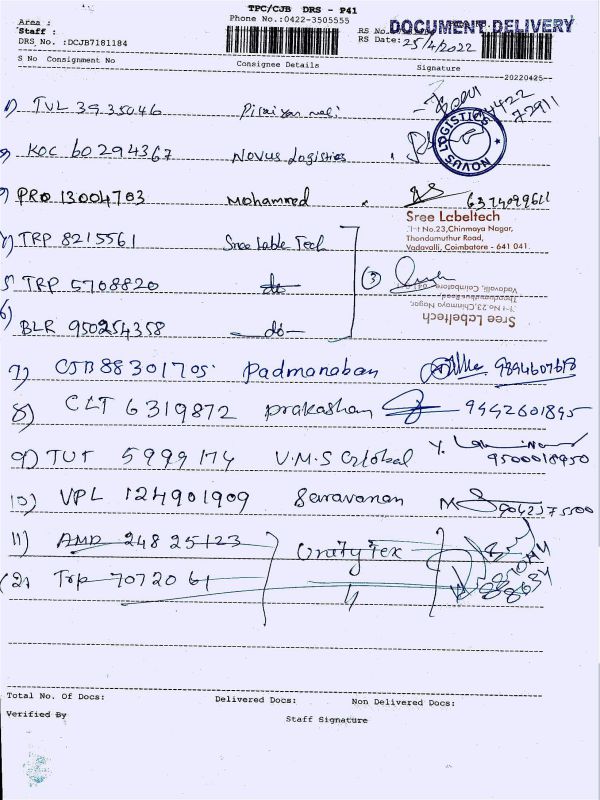 TPC/CJB DRS - P41
Area :
Phone No.:0422-3505555
DOCUMENT DELIVERY
Staff :
RS No.
DRS No. :DCJB7181184
RS Date: 25/4/2022
S No Consignment No Consignee Details Signature
20220425
1) TVL 3935046 4422
72911
2) KOC 60294367 Novus Logistics
NOVUS LOGISTICS
3) PRO 13004703 Mohammed 6374099611
Sree Labeltech
No.23,Chinmaya Nagar,
Thondamuthur Road,
Vadavalli, Coimbatore - 641 041.
4) TRP 8215561 Sree Lable Tech
5) TRP 5708820 do 3
Sree Labeltech
No 23,Chinmaya Nagar,
Thondamuthur Road
Vadavalli, Coimbatore
6) BLR 950254358 do
7) CJB 88301705 Padmanaban 9894607618
8) CLT 6319872 prakashan 9442601895
9) TUT 5999174 V.M.S Global 9500018950
10) VPL 124901909 Saravanan
11) AMD 24825123 Unity Tex
12) Trp 7072061 "
Total No. Of Docs: Delivered Docs: Non Delivered Docs:
Verified By Staff Signature